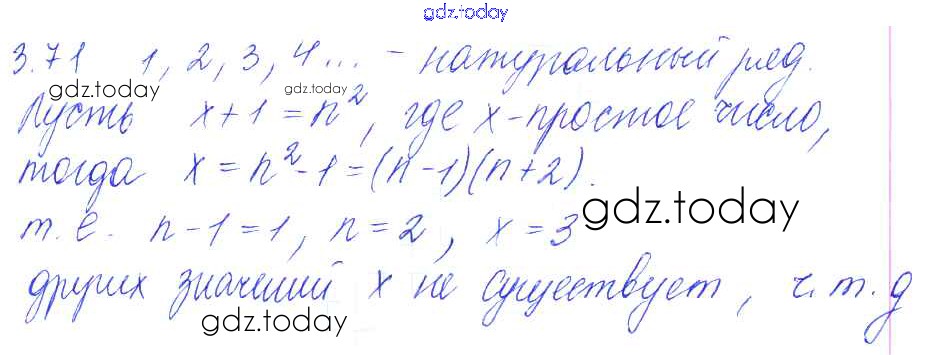 gdz.today
3.71 1, 2, 3, 4... – натуральный ряд.
gdz.today
Пусть x+1 = n², где x-простое число,
gdz.today
тогда x = n²-1 = (n-1)(n+2).
т.е. n-1=1, n=2, x=3
gdz.today
других значений x не существует, ч.т.д
gdz.today